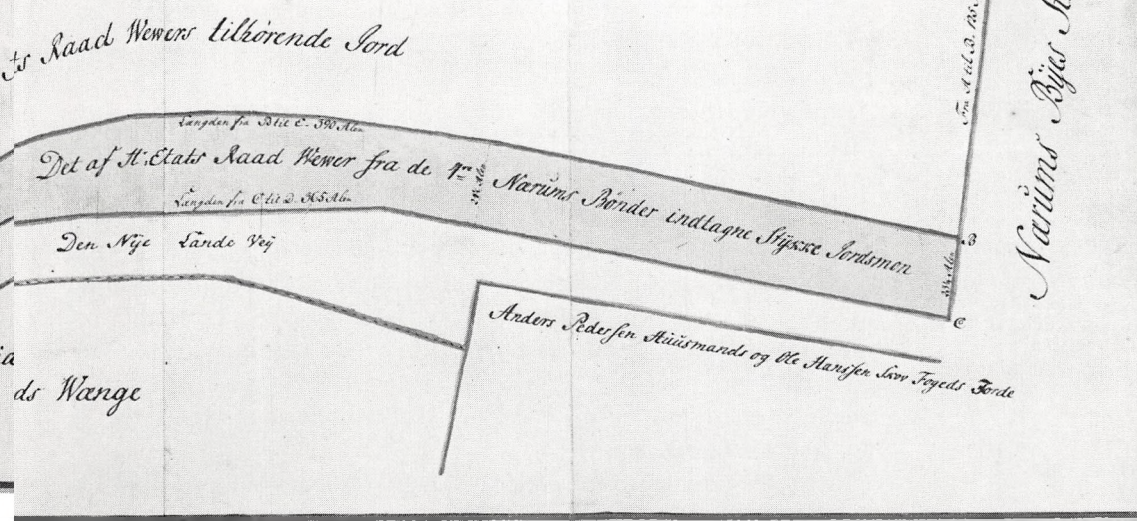 ts Raad Wewers tilhørende Jord
Længden fra B til C. 390 Alen
Det af H. Etats Raad Wewer fra de 4re Nærŭms Bønder indtagne Stÿkke Jordsmon
Længden fra C til D. 365 Alen
Den Nÿe Lande Veÿ
ds Wænge
Anders Pederssen Hŭŭsmands og Ole Hanssen Skov Fogeds Jorde
B
C
Fra A til B.
Nærŭms Bÿes